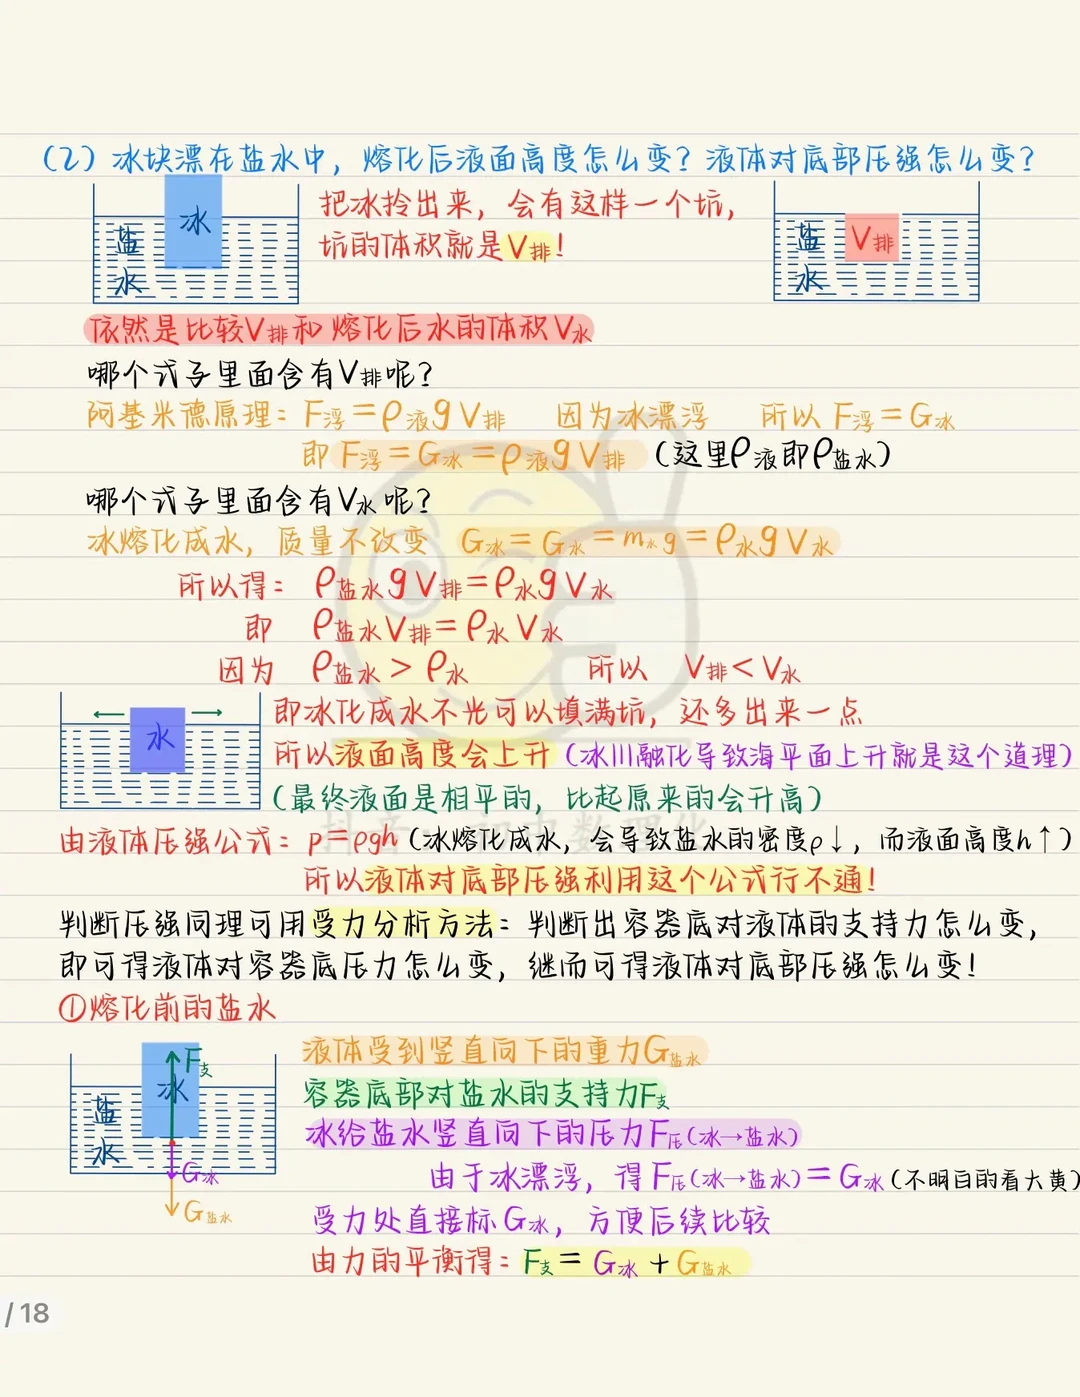 (2) 冰块漂在盐水中，熔化后液面高度怎么变？液体对底部压强怎么变？
冰
盐水
把冰拎出来，会有这样一个坑，
坑的体积就是V排！
盐水
V排
依然是比较V排和熔化后水的体积V水
哪个式子里面含有V排呢？
阿基米德原理：F浮=ρ液gV排 因为冰漂浮 所以F浮=G冰
即F浮=G冰=ρ液gV排 (这里ρ液即ρ盐水)
哪个式子里面含有V水呢？
冰熔化成水，质量不改变 G冰=G水=m水g=ρ水gV水
所以得：ρ盐水gV排=ρ水gV水
即 ρ盐水V排=ρ水V水
因为 ρ盐水>ρ水 所以 V排<V水
水
即冰化成水不光可以填满坑，还多出来一点
所以液面高度会上升 (冰川融化导致海平面上升就是这个道理)
(最终液面是相平的，比起原来的会升高)
由液体压强公式：p=ρgh (冰熔化成水，会导致盐水的密度ρ↓，而液面高度h↑)
所以液体对底部压强利用这个公式行不通！
判断压强同理可用受力分析方法：判断出容器底对液体的支持力怎么变，
即可得液体对容器底压力怎么变，继而可得液体对底部压强怎么变！
①熔化前的盐水
F支
冰
盐水
G冰
G盐水
液体受到竖直向下的重力G盐水
容器底部对盐水的支持力F支
冰给盐水竖直向下的压力F压(冰→盐水)
由于冰漂浮，得F压(冰→盐水)=G冰 (不明白的看大黄)
受力处直接标G冰，方便后续比较
由力的平衡得：F支=G冰+G盐水
/18